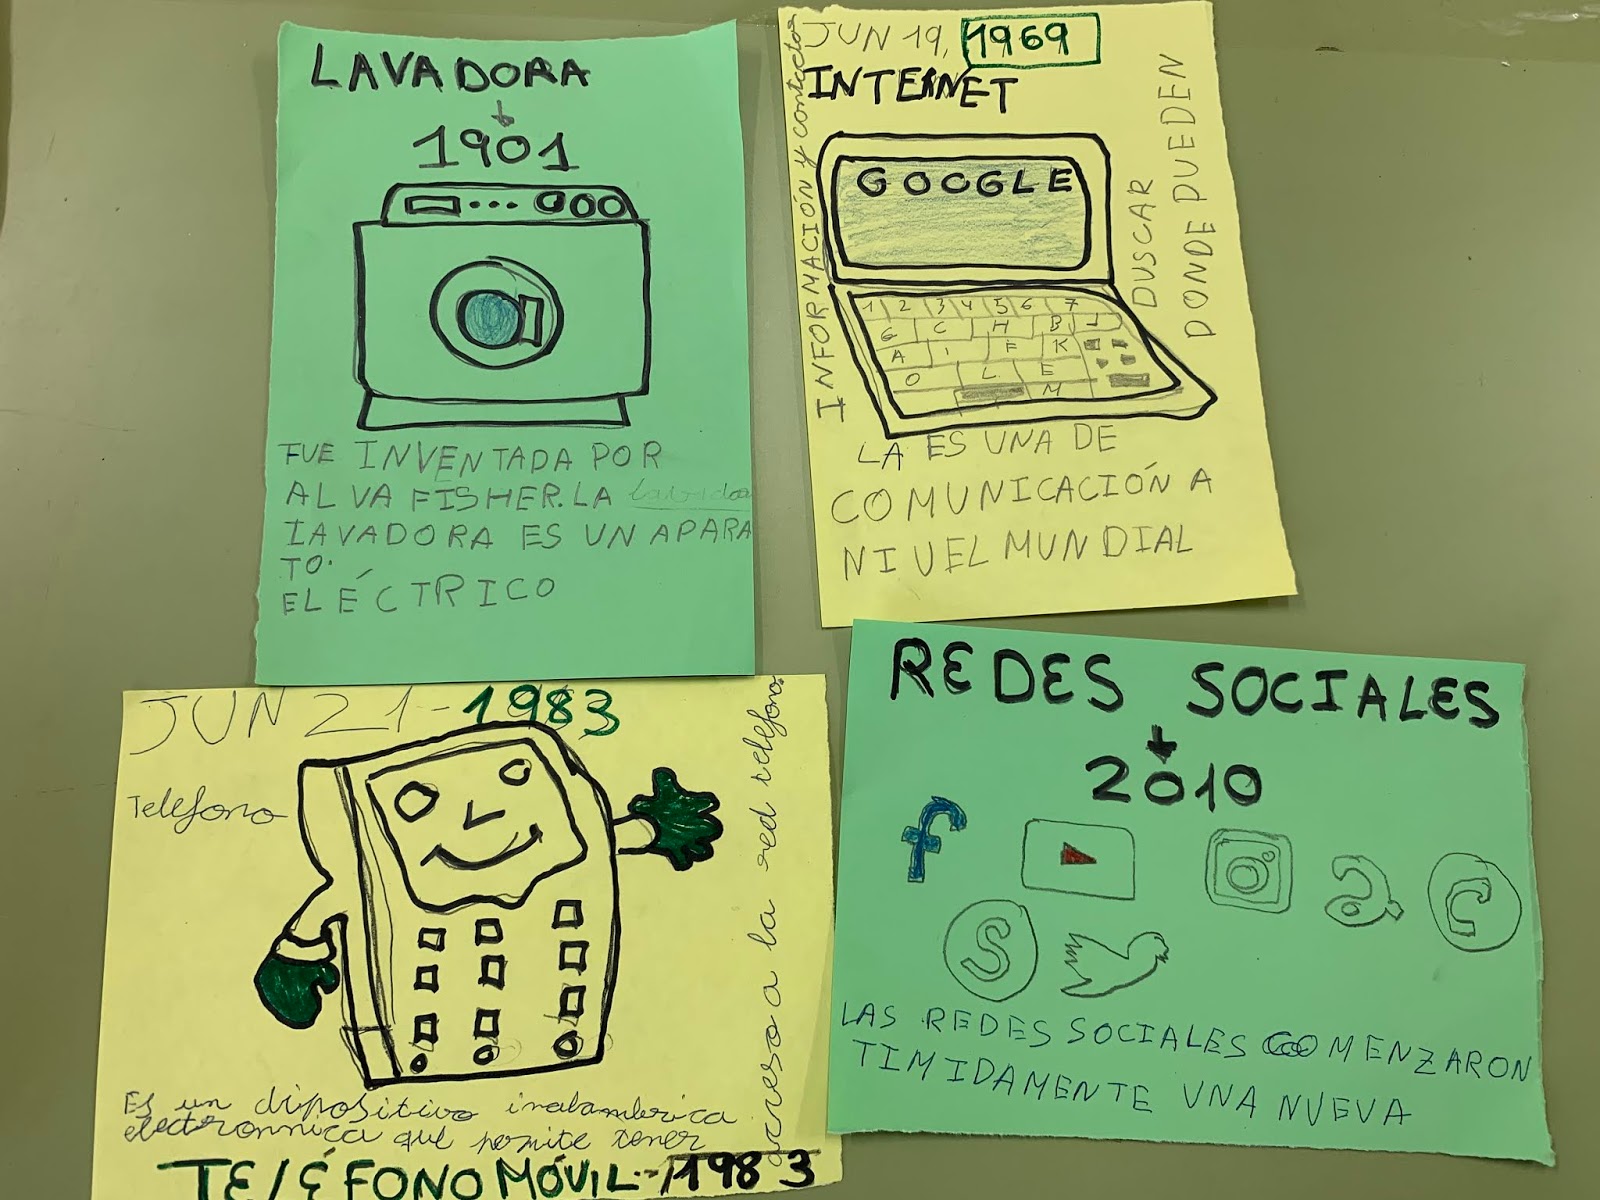 LAVADORA
1901
FUE INVENTADA POR
ALVA FISHER. LA
LAVADORA ES UN APARA
TO.
ELÉCTRICO
JUN 19, 1969
INTERNET
GOOGLE
1 2 3 4 5 6 7
G C H B J
A I F K
O L E
M
LA ES UNA DE
COMUNICACIÓN A
NIVEL MUNDIAL
DONDE PUEDEN
DUSCAR
INFORMACIÓN y contacto
JUN 21 - 1983
Telefono
Es un dipositivo inalambrica
electronnica que permite tener
acceso a la red telefono
TELÉFONO MÓVIL - 1983
REDES SOCIALES
2010
f
S
LAS REDES SOCIALES COMENZARON
TIMIDAMENTE UNA NUEVA